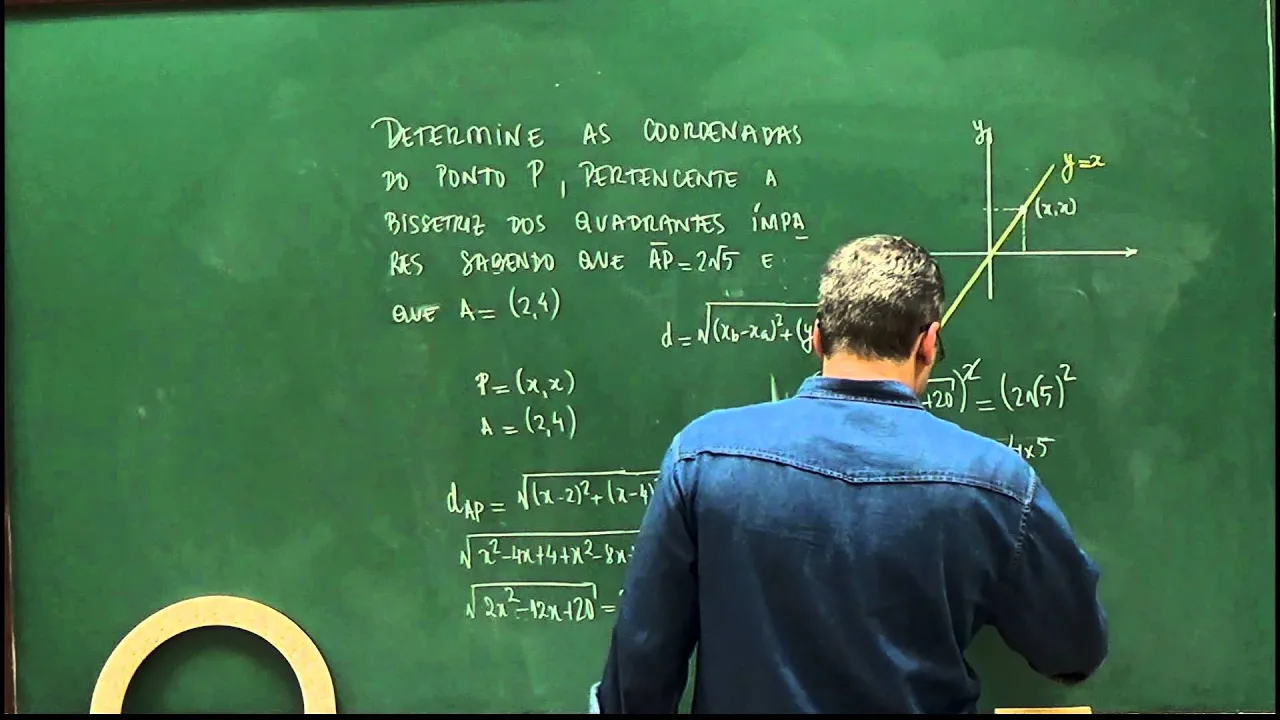 DETERMINE AS COORDENADAS
DO PONTO P, PERTENCENTE A
BISSETRIZ DOS QUADRANTES ÍMPA
RES SABENDO QUE A̅P̅=2√5 E
QUE A=(2,4)
y
y=x
(x,x)
d=√(x_b-x_a)²+(y
P=(x,x)
A=(2,4)
+20)²=(2√5)²
4x5
d_AP=√(x-2)²+(x-4)
√x²-4x+4+x²-8x
√2x²-12x+20=